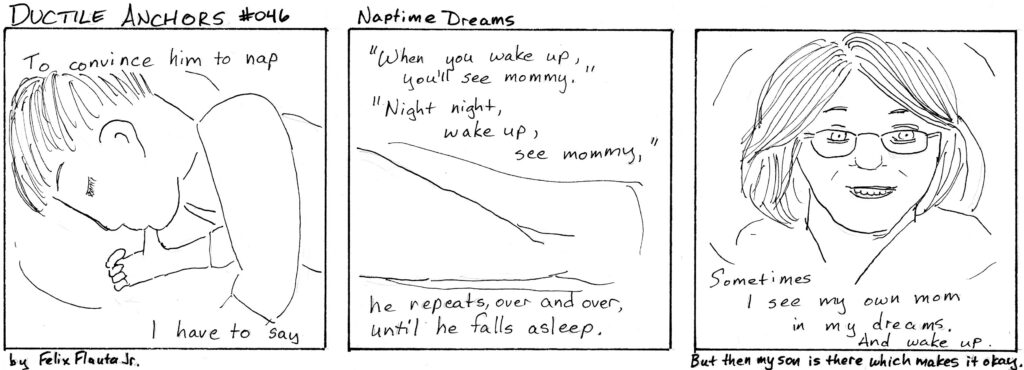 DUCTILE ANCHORS #046
NAPTIME DREAMS
To convince him to nap
I have to say
by Felix Flauta Jr.
"When you wake up,
you'll see mommy."
"Night night,
wake up,
see mommy,"
he repeats, over and over,
until he falls asleep.
Sometimes
I see my own mom
in my dreams.
And wake up.
But then my son is there which makes it okay.